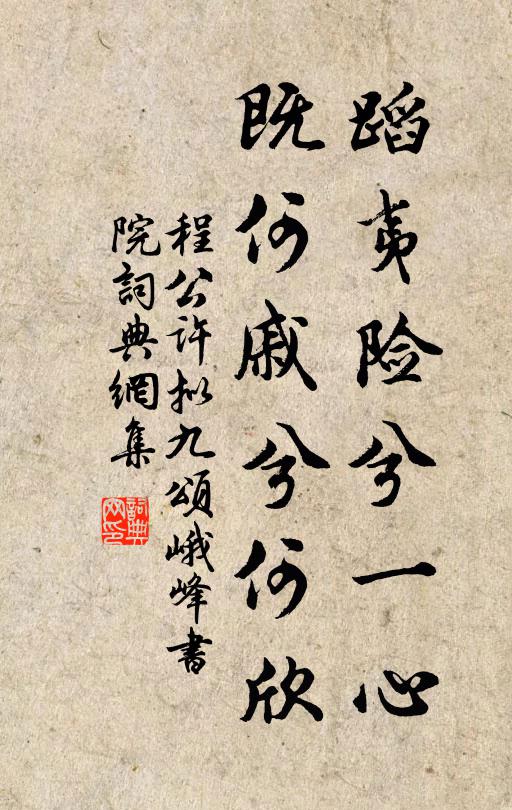 蹈夷险兮一心
既何戚兮何欣
程公许拟九頌峨峰書
院詞典網集
詞典
网印